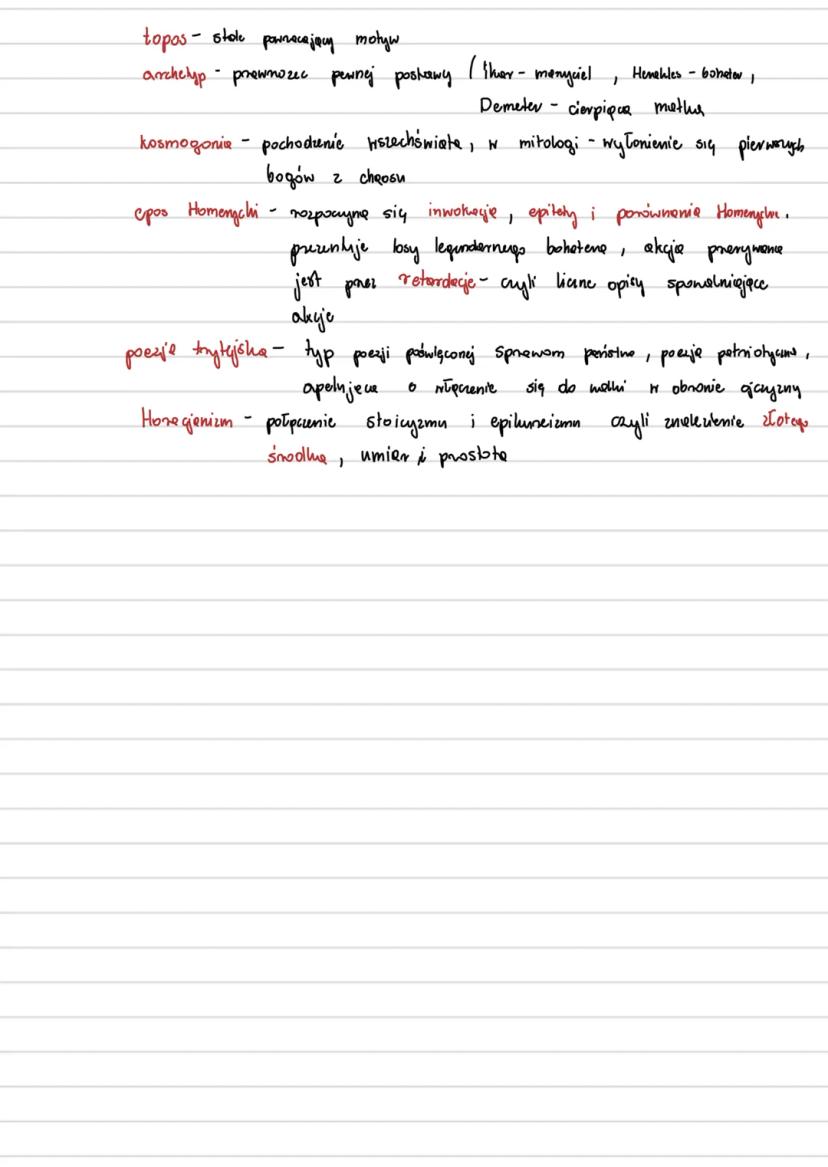 topos - stale powracający motyw
archetyp - prawzorzec pewnej postawy (Ikar - marzyciel, Herakles - bohater,
Demeter - cierpiąca matka
kosmogonia - pochodzenie wszechświata, w mitologi - wyłonienie się pierwszych
bogów z chaosu
epos Homerycki - rozpoczyna się inwokacją, epitety i porównania Homeryckie.
prezentuje losy legendarnego bohatera, akcja przerywana
jest przez retardacje - czyli liczne opisy spowalniające
akcje
poezja tyrtejska - typ poezji poświęconej sprawom państwa, poezja patriotyczna,
apelująca o włączenie się do walki w obronie ojczyzny
Horacjanizm - połączenie stoicyzmu i epikureizmu czyli znalezienie złotego
środka, umiar i prostota